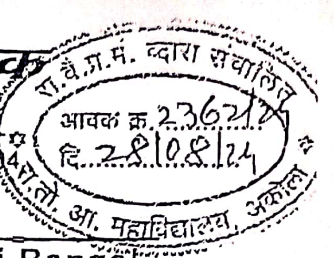 रा.वै.प्र.मं. व्दारा संचालित
आवक क्र. 2362/24
दि. 28/08/24
रा.तो. आ. महाविद्यालय, अकोला